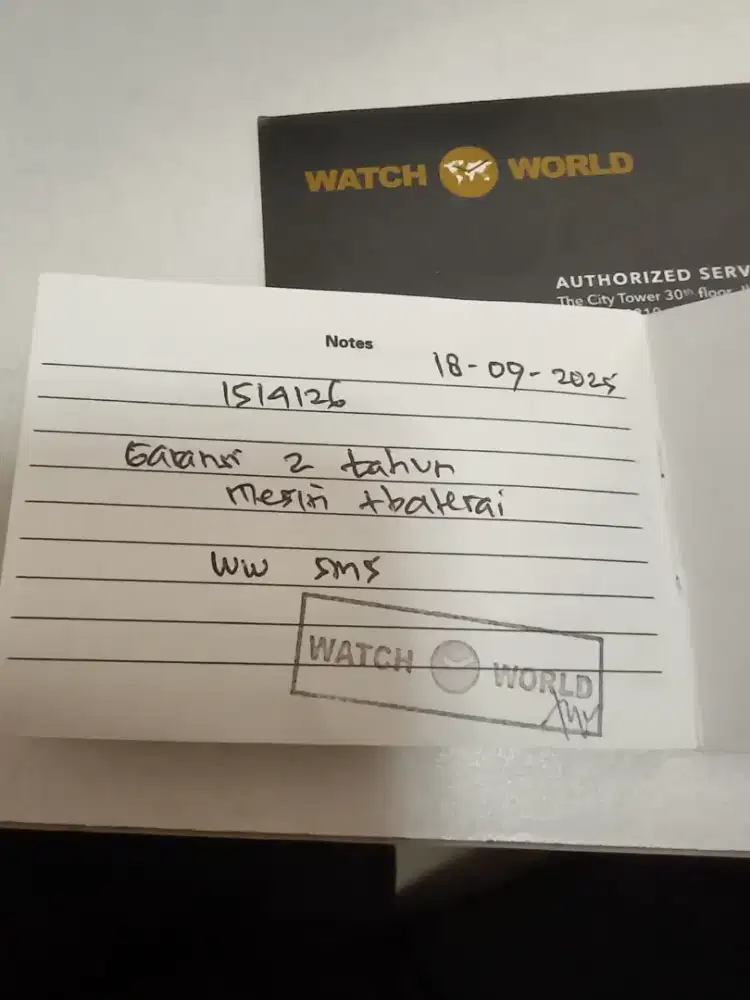 WATCH WORLD
AUTHORIZED SERV
The City Tower 30th floor
Notes
18-09-2025
1514126
Garansi 2 tahun
mesin + baterai
WW SMS
WATCH WORLD